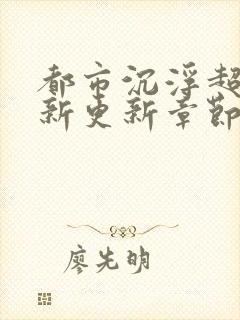 都市沉浮超
新更新章節
廖先明